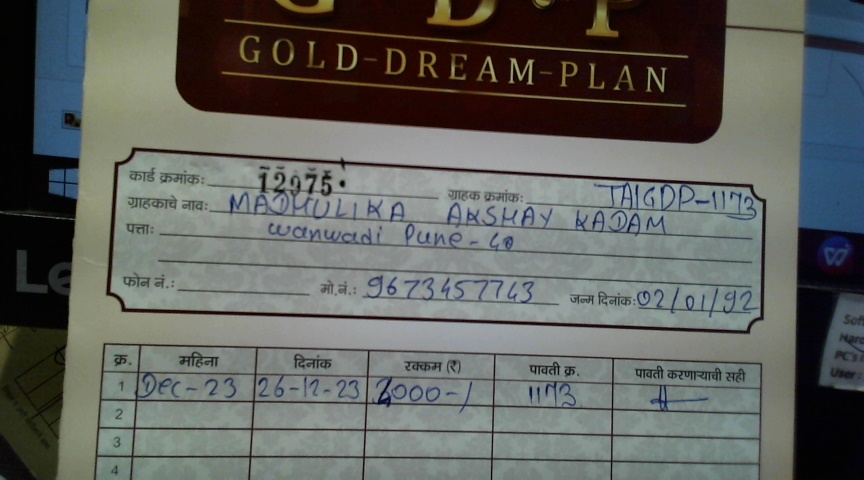 GOLD-DREAM-PLAN
कार्ड क्रमांक: 12975 ग्राहक क्रमांक: TAIGDP-1173
ग्राहकाचे नाव: MADHULIKA AKSHAY KADAM
पत्ता: wanwadi Pune - 40
फोन नं.: मो.नं.: 9673457743 जन्म दिनांक: 02/01/92
क्र. महिना दिनांक रक्कम (₹) पावती क्र. पावती करणाऱ्याची सही
1 Dec-23 26-12-23 2000-/ 1173
2
3
4
Le